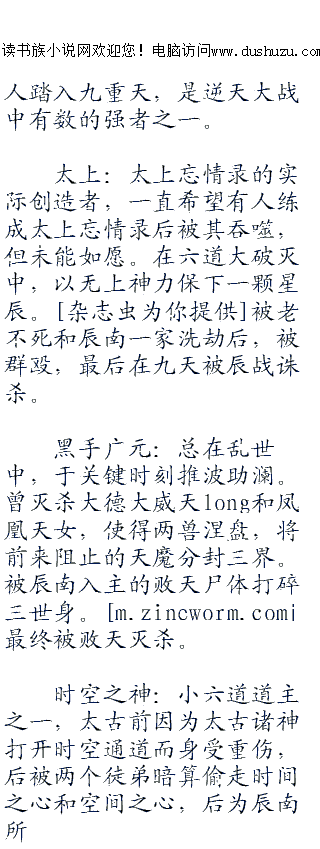 读书族小说网欢迎您！电脑访问www.dushuzu.com
人踏入九重天，是逆天大战
中有数的强者之一。
太上：太上忘情录的实
际创造者，一直希望有人练
成太上忘情录后被其吞噬，
但未能如愿。在六道大破灭
中，以无上神力保下一颗星
辰。[杂志虫为你提供]被老
不死和辰南一家洗劫后，被
群殴，最后在九天被辰战诛
杀。
黑手广元：总在乱世
中，于关键时刻推波助澜。
曾灭杀大德大威天long和凤
凰天女，使得两兽涅盘，将
前来阻止的天魔分封三界。
被辰南入主的败天尸体打碎
三世身。[m.zincworm.com]
最终被败天灭杀。
时空之神：小六道道主
之一，太古前因为太古诸神
打开时空通道而身受重伤，
后被两个徒弟暗算偷走时间
之心和空间之心，后为辰南
所